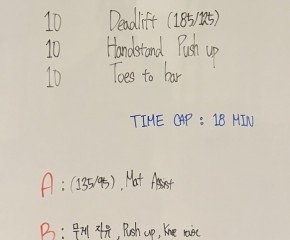 10 Deadlift (185/125)
10 Handstand Push up
10 Toes to bar
TIME CAP : 18 MIN
A : (135/95), Mat Assist
B : 무게 자유, Push up, Knee raise